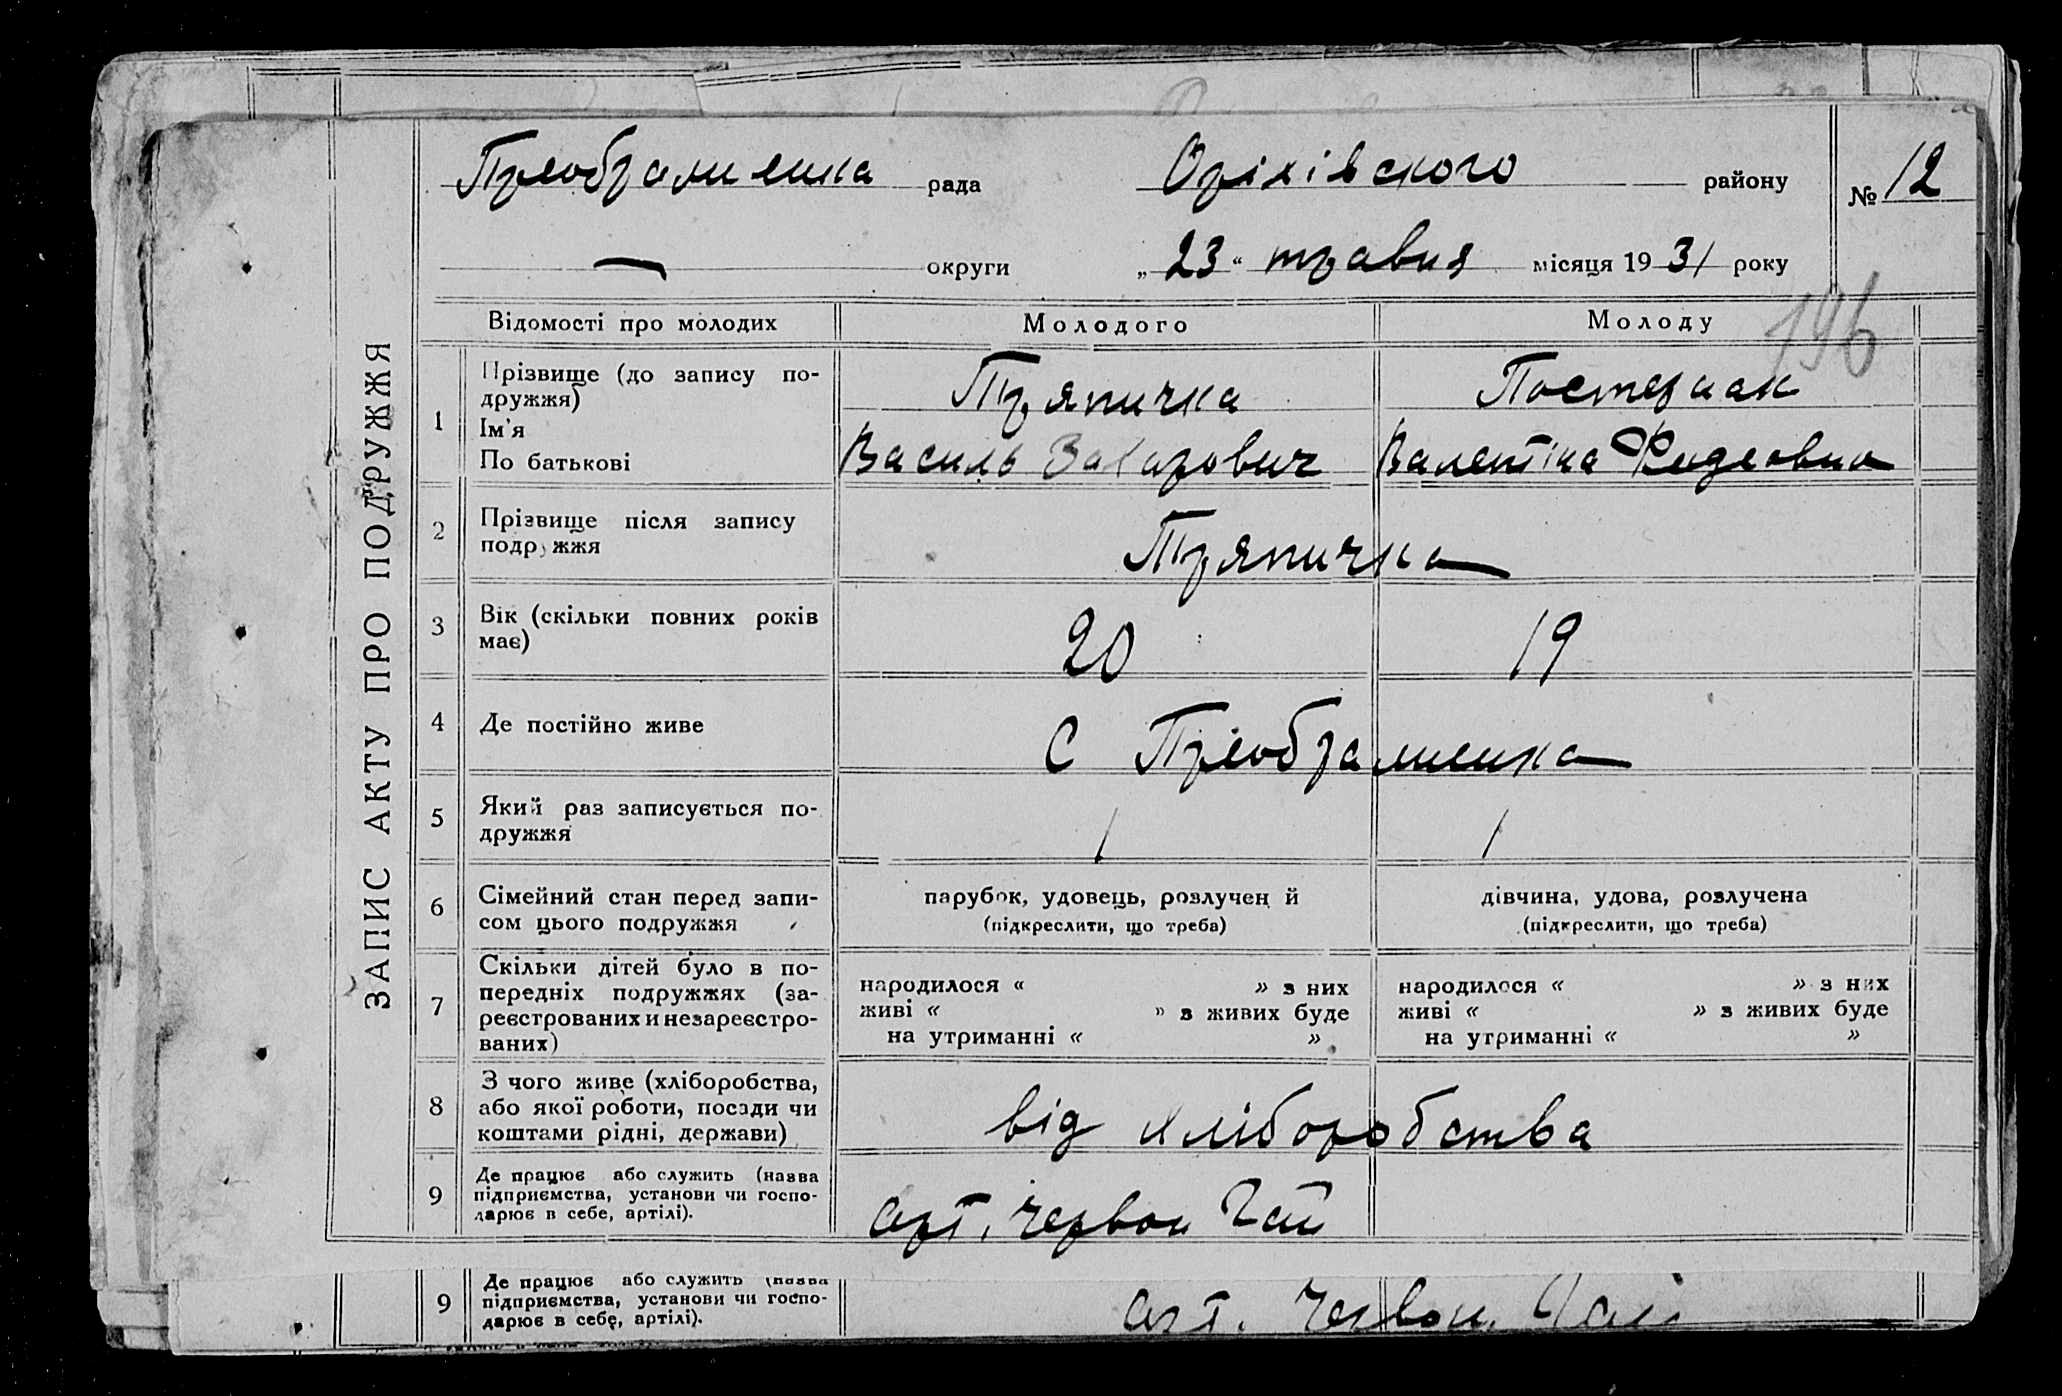 ЗАПИС АКТУ ПРО ПОДРУЖЖЯ
Преображенка рада Оріхівского району № 12
— округи „ 23 “ травня місяця 19 31 року
196
Відомості про молодих Молодого Молоду
1 Прізвище (до запису по-
дружжя) Тряпичка Постернак
Ім'я
По батькові Василь Захарович Валентіна
2 Прізвище після запису
подружжя Тряпичка
3 Вік (скільки повних років
має) 20 19
4 Де постійно живе С Преображенка
5 Який раз записується по-
дружжя 1 1
6 Сімейний стан перед запи-
сом цього подружжя
парубок, удовець, розлучен й
(підкреслити, що треба)
дівчина, удова, розлучена
(підкреслити, що треба)
7 Скільки дітей було в по-
передніх подружжях (за-
реєстрованих и незареєстро-
ваних)
народилося « » з них
живі « » з живих буде
на утриманні « »
народилося « » з них
живі « » з живих буде
на утриманні « »
8 З чого живе (хліборобства,
або якої роботи, посади чи
коштами рідні, держави) від хліборобства
9 Де працює або служить (назва
підприємства, установи чи госпо-
дарює в себе, артілі). арт. Червон Гай
9 Де працює або служить (назва
підприємства, установи чи госпо-
дарює в себе, артілі). арт. Червон. Гай